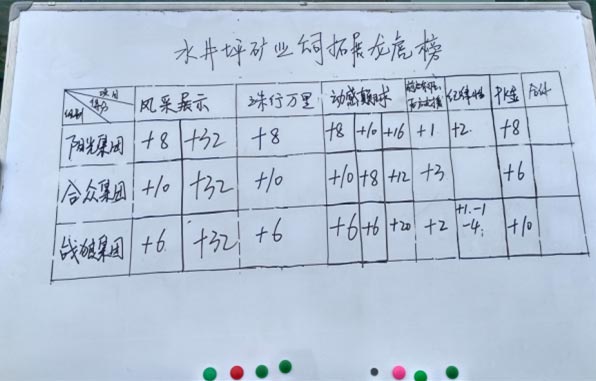 水井坪矿业公司拓展龙虎榜
项目 得分 组别 风采展示 珠行万里 动感颠球 纪律性 PK金 合计
阳光集团 +8 +32 +8 +8 +10 +16 +1 +2. +8
合众集团 +10 +32 +10 +10 +8 +12 +3 +6
战狼集团 +6 +32 +6 +6 +6 +20 +2 +1.-1 -4. +10